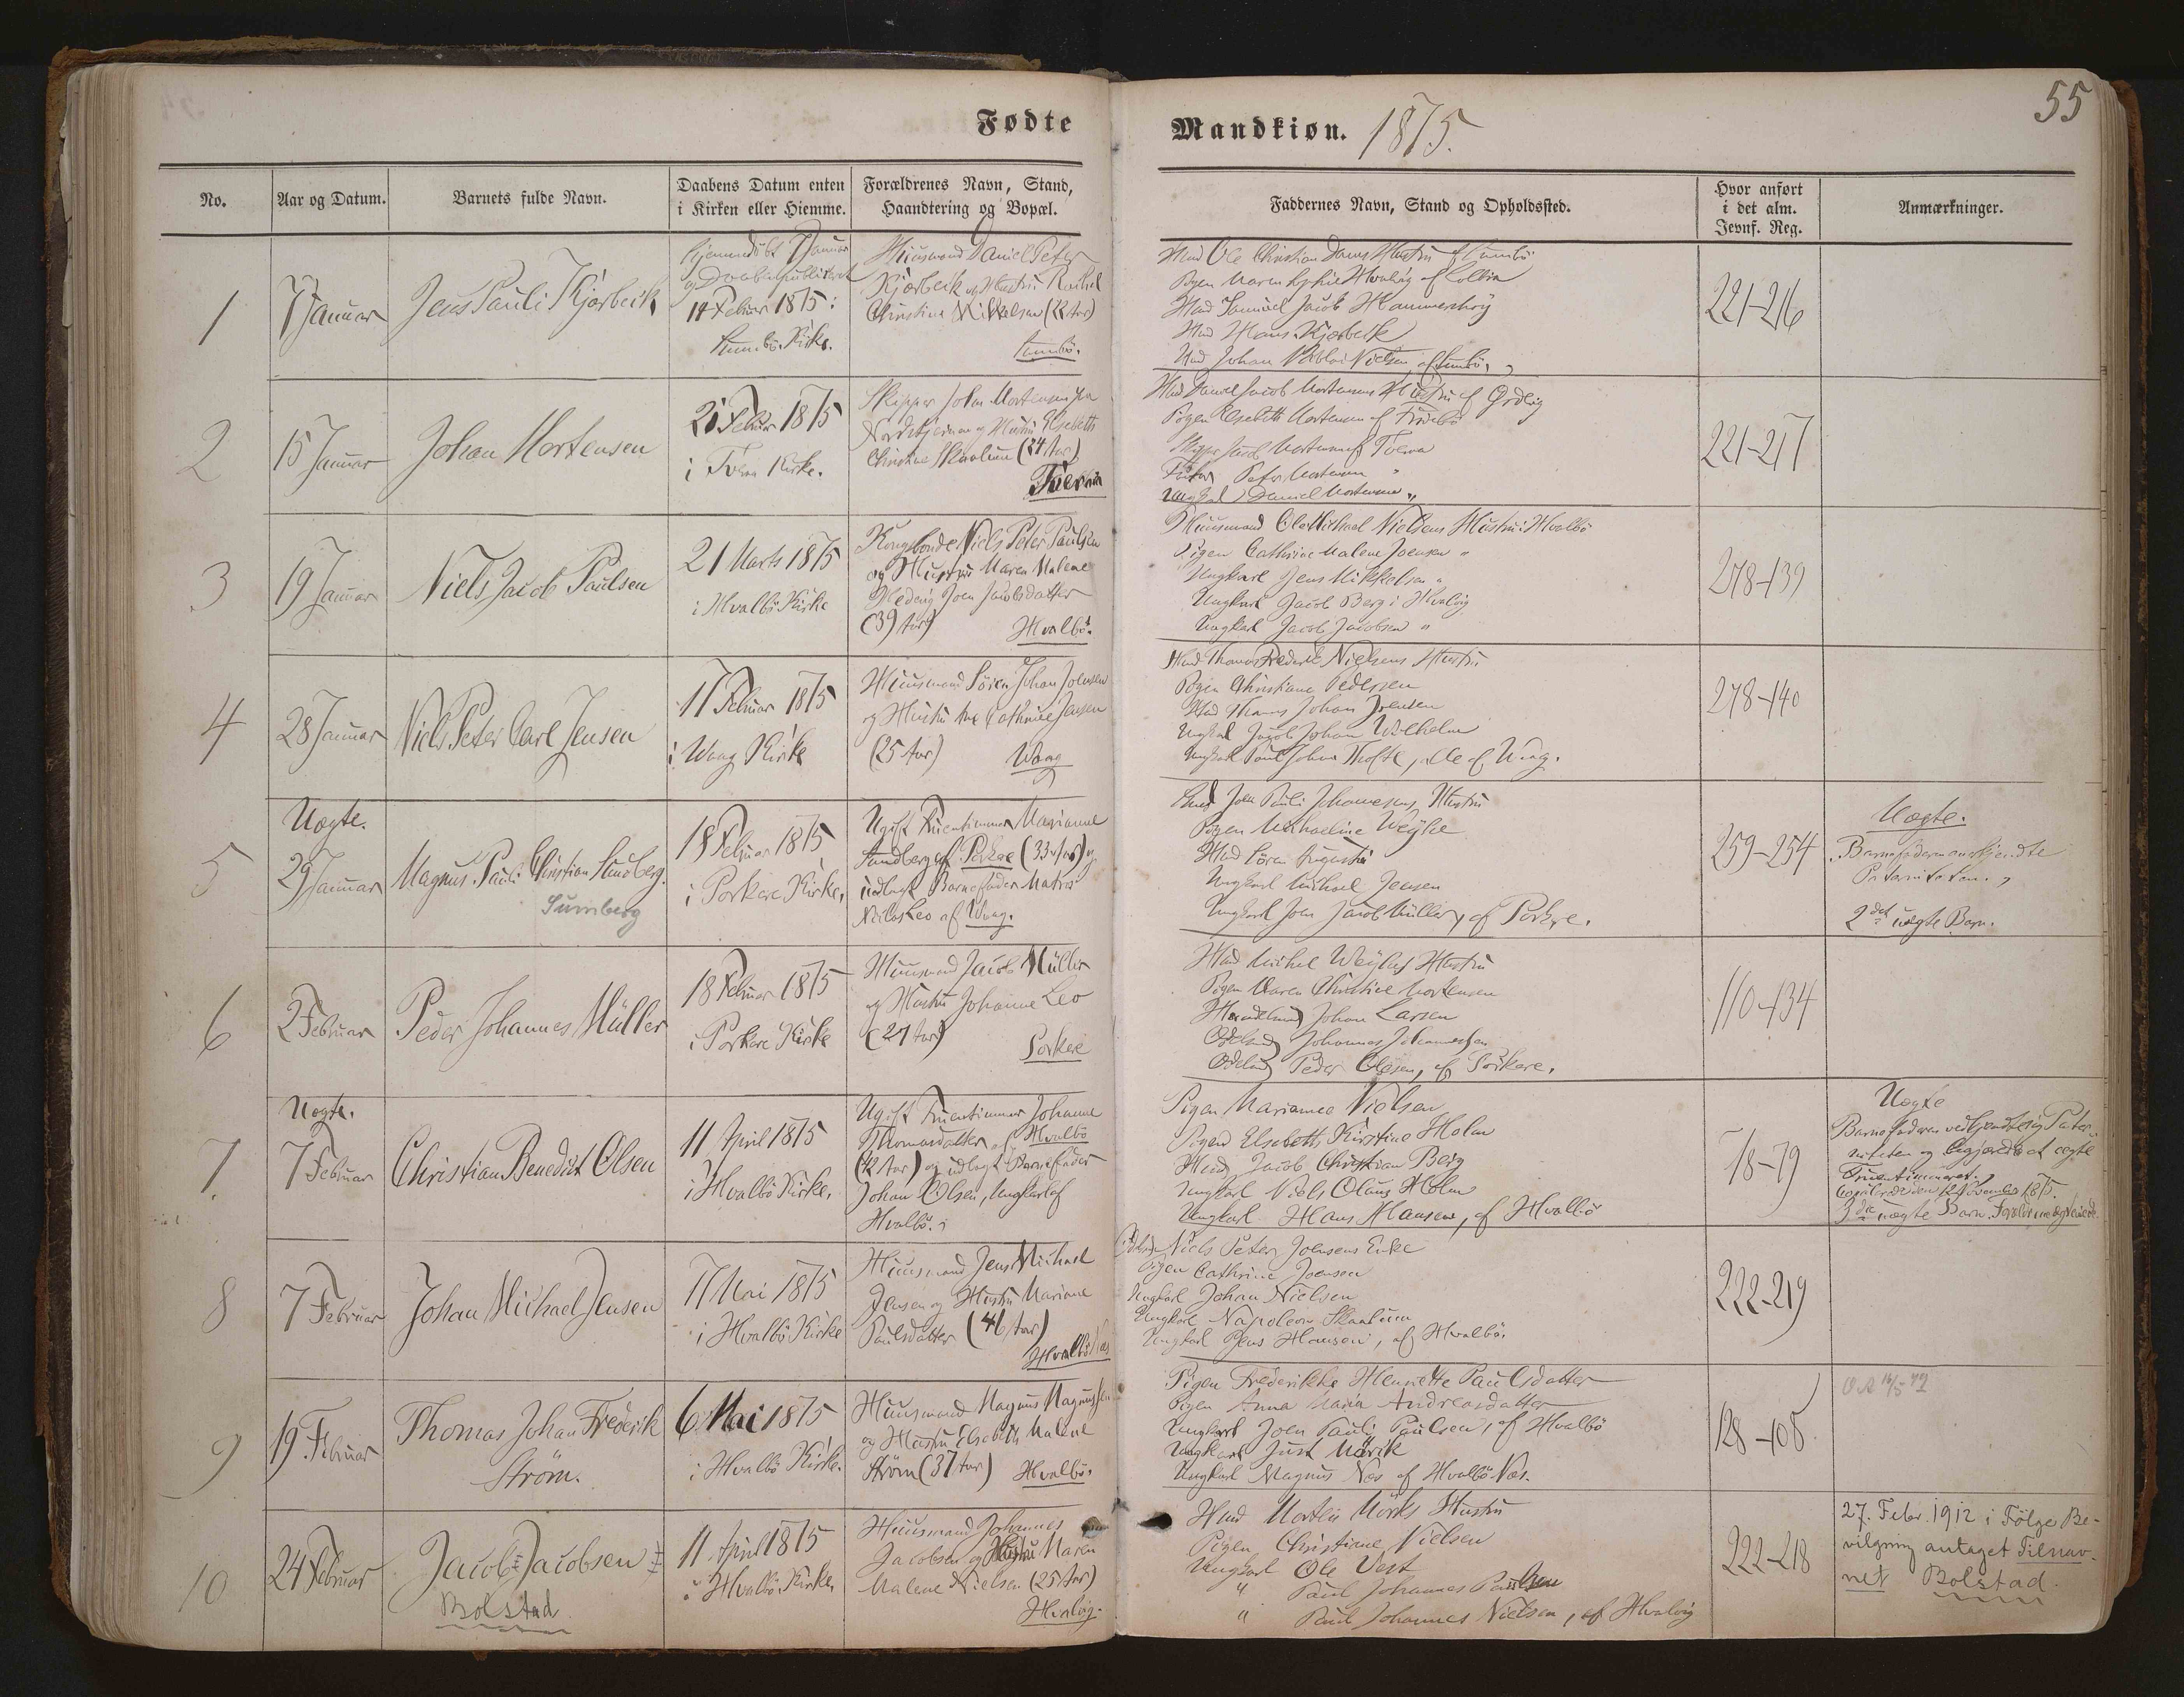 55
Fødte
Mandkiøn. 1875.
No.
Aar og Datum.
Barnets fulde Navn.
Daabens Datum enten
i Kirken eller Hiemme.
Forældrenes Navn, Stand,
Haandtering og Bopæl.
Faddernes Navn, Stand og Opholdssted.
Hvor anført
i det alm.
Jevnf. Reg.
Anmærkninger.
1
7 Januar
Jens Pauli Kjørbeck
Hjemmedøbt 7 Januar
og Daaben publiceret
14 Februar 1875:
Sumbö Kirke.
Huusmand Daniel Peter
Kjørbeck og Hustru Rachel
Christine Mikkelsen (22 Aar)
Sumbö.
Hmd Ole Christian Hustru af Sumbö
Pigen Maren Sophie af
Hmd Samuel Jacob Hammershöj
Hmd Hans Kjørbeck
Hmd Johan Nicolai Nielsen, af Sumbö.
221-216
2
15 Januar
Johan Mortensen
Februar 1875
i Tveraa Kirke.
Skipper John Mortensen
og Hustru Elsebeth
Christine Skaalum (24 Aar)
Tveraa
Hmd Daniel Jacob Mortensens Hustru af Ördevig
Pigen Elsebeth Mortensen af Frodebö
Skipper Jacob Mortensen af Tveraa
Peter Mortensen "
Ungkarl Daniel Mortensen "
221-217
3
19 Januar
Niels Jacob Paulsen
21 Marts 1875
i Hvalbö Kirke
Kongsbonde Niels Peter Paulsen
og Hustru Maren Malene
Hedevig Joen Jacobsdatter
(39 Aar)
Hvalbö.
Huusmand Ole Michael Nielsens Hustru i Hvalbö
Pigen Cathrine Malene Joensen "
Ungkarl Jens Mikkelsen "
Ungkarl Jacob Berg i Hvalvig
Ungkarl Jacob Jacobsen "
278-139
4
28 Januar
Niels Peter Carl Jensen
17 Februar 1875
i Waag Kirke
Huusmand Sören Johan Joensen
og Hustru Ane Cathrine Jensen
(25 Aar)
Waag
Hmd Thomas Frederik Nielsens Hustru
Pigen Christiane Pedersen
Hmd Thomas Johan Joensen
Ungkarl Jacob Johan Wilhelm
Ungkarl Poul Johan Thofte, alle af Waag.
278-140
5
Uægte.
29 Januar
Magnus Pauli Christian Sundberg.
Sumberg
18 Februar 1875
i Porkere Kirke,
Ugift Fruentimmer Marianne
Sundberg af Porkere (33 Aar) og
udlagt Barnefader Matros
Niclas Leo af Waag.
Hmd Joen Pauli Johannesens Hustru
Pigen Michaeline Weyhe
Hmd Sören Augustin
Ungkarl Michael Jensen
Ungkarl Joen Jacob Müller, af Porkere.
259-254
Uægte.
Barnefaderen anerkjendte
Paterniteten.
2det uægte Barn.
6
2 Februar
Peder Johannes Müller
18 Februar 1875
i Porkere Kirke
Huusmand Jacob Müller
og Hustru Johanne Leo
(27 Aar)
Porkere
Hmd Michel Weyhes Hustru
Pigen Maren Christine Mortensen
Handelsmd Johan Larsen
Odelsmd Johannes Johannessen
Odelsmd Peder Olesen, af Porkere.
110-134
7
Uægte.
7 Februar
Christian Benedict Olsen
11 April 1875
i Hvalbö Kirke,
Ugift Fruentimmer Johanne
Thomasdatter af Hvalbö
(42 Aar) og udlagt Barnefader
Johan Olsen, Ungkarl af
Hvalbö.
Pigen Marianne Nielsen
Pigen Elsebeth Kirstine Holm
Hmd Jacob Christian Berg
Ungkarl Niels Olaus Holm
Ungkarl Hans Hansen, af Hvalbö
78-79
Uægte
Barnefaderen vedkjendte sig Pater-
niteten og begjærede at ægte
Fruentimmeret.
12 November 1875.
3die uægte Barn.
8
7 Februar
Johan Michael Jensen
17 Mai 1875
i Hvalbö Kirke
Huusmand Jens Michael
Jensen og Hustru Mariane
Paulsdatter (46 Aar)
Hvalbö Næs
Niels Peter Joensens Enke
Pigen Cathrine Joensen
Ungkarl Johan Nielsen
Ungkarl Napoleon Skaalum
Ungkarl Jens Hansen, af Hvalbö.
222-219
9
19 Februar
Thomas Johan Frederik
Ström.
6 Mai 1875
i Hvalbö Kirke.
Huusmand Magnus Magnussen
og Hustru Elsebeth Malene
Ström (37 Aar) Hvalbö.
Pigen Frederikke Henriette Paulsdatter
Pigen Anna Maria Andreasdatter
Ungkarl Joen Pauli Paulsen, af Hvalbö
Ungkarl Just Mörk
Ungkarl Magnus Næs af Hvalbö Næs.
128-108
10
24 Februar
Jacob Jacobsen
Bolstad
11 April 1875
i Hvalbö Kirke,
Huusmand Johannes
Jacobsen og Hustru Maren
Malene Nielsen (25 Aar)
Hvalvig.
Hmd Morten Mörks Hustru
Pigen Christiane Nielsen
Ungkarl Ole Vest
" Poul Johannes Poulsen
" Poul Johannes Nielsen, af Hvalvig
222-218
27. Febr. 1912 i Følge Be-
vilgning antaget Tilnav-
net Bolstad.